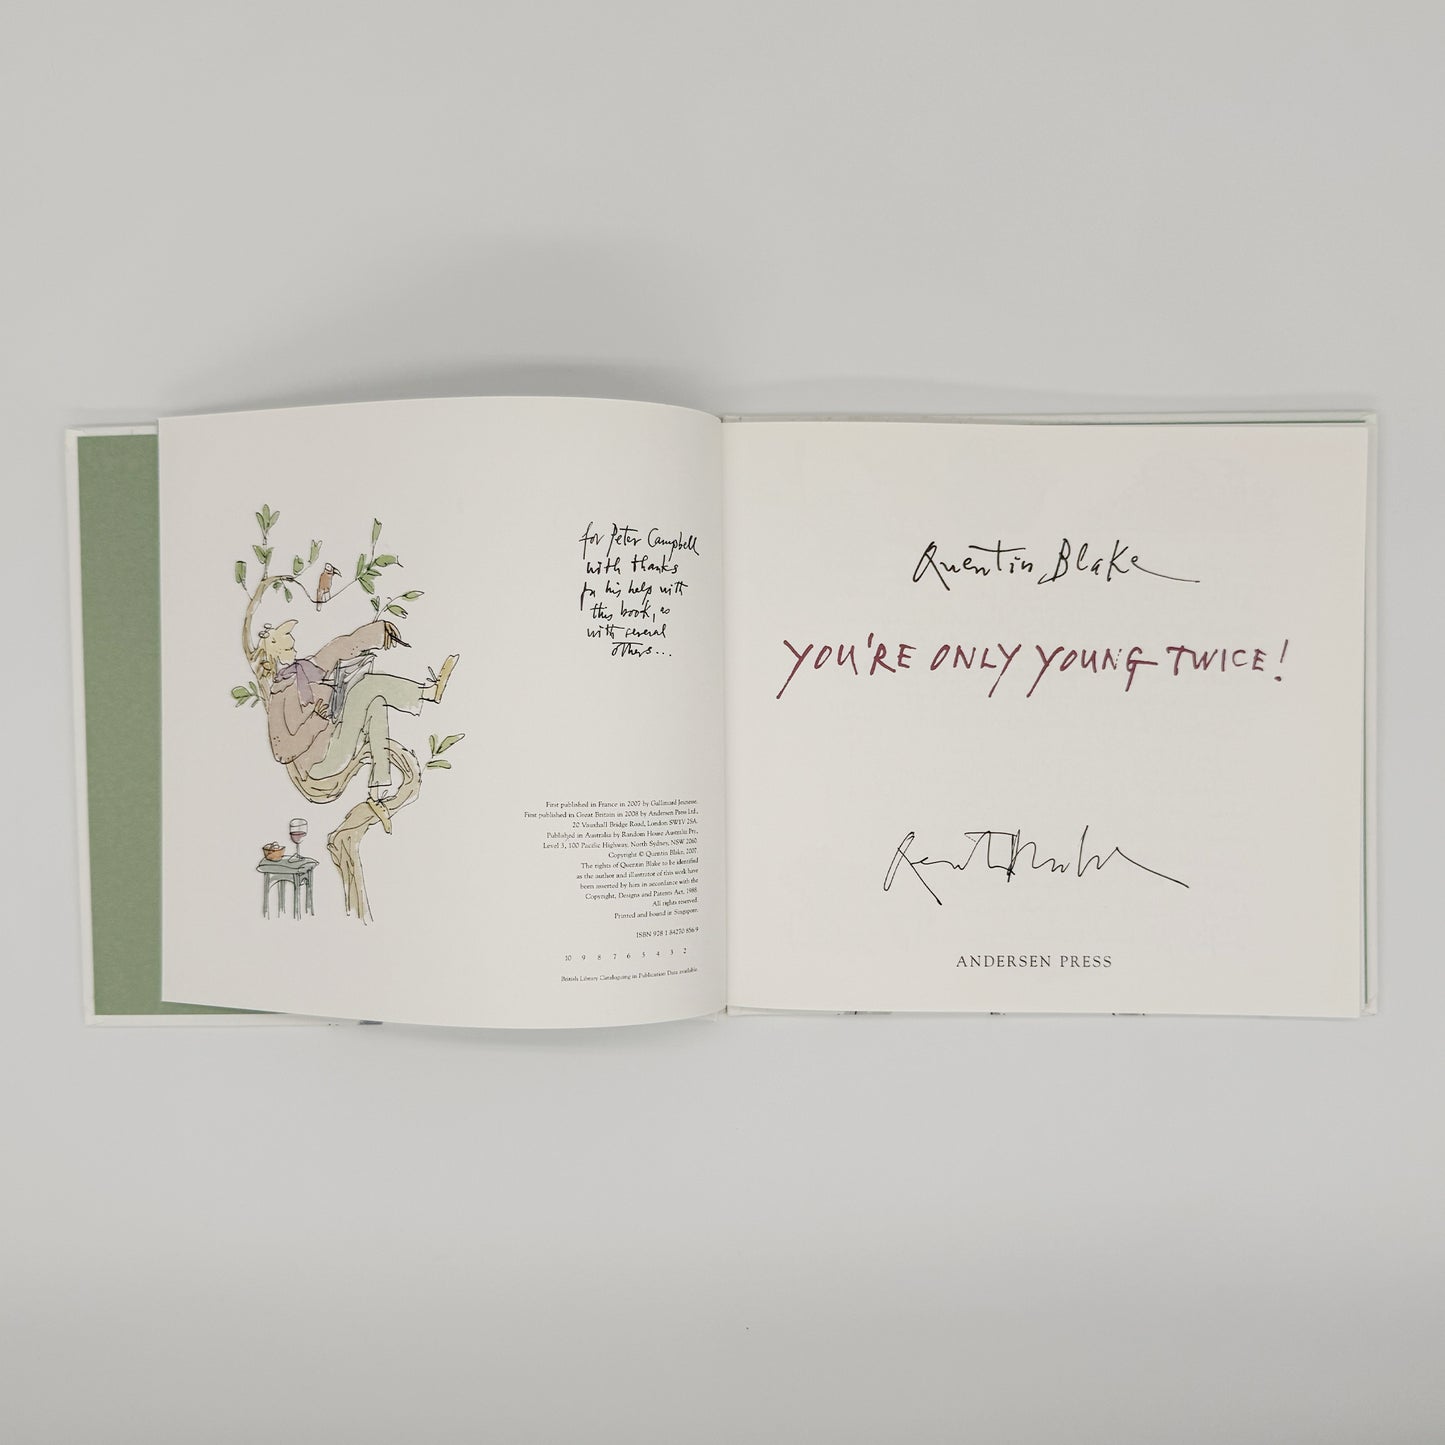 for Peter Campbell
with thanks
for his help with
this book, as
with several
others...
First published in France in 2007 by Gallimard Jeunesse.
First published in Great Britain in 2008 by Andersen Press Ltd.,
20 Vauxhall Bridge Road, London SW1V 2SA.
Published in Australia by Random House Australia Pty.,
Level 3, 100 Pacific Highway, North Sydney, NSW 2060.
Copyright © Quentin Blake, 2007.
The rights of Quentin Blake to be identified
as the author and illustrator of this work have
been asserted by him in accordance with the
Copyright, Designs and Patents Act, 1988.
All rights reserved.
Printed and bound in Singapore.
ISBN 978 1 84270 856 9
10 9 8 7 6 5 4 3 2
British Library Cataloguing in Publication Data available.
Quentin Blake
YOU'RE ONLY YOUNG TWICE!
Quentin Blake
ANDERSEN PRESS